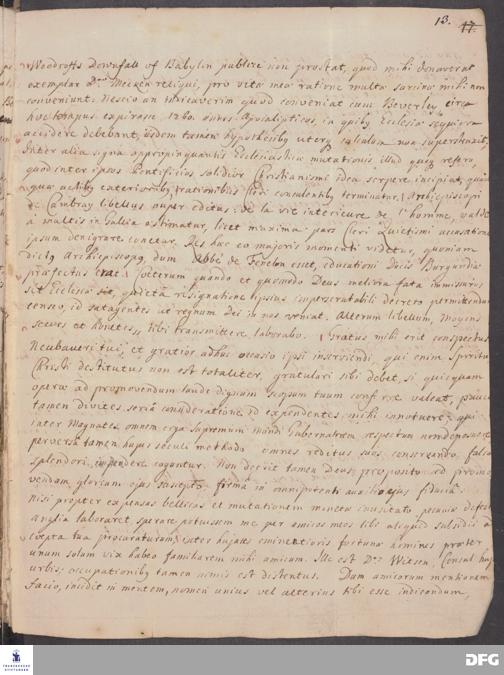 13. 17.
Woodroffs Downfall of Babylin publice non prostat, quod mihi donaverat
exemplar Dno Mecken reliqui, pro vita mea ratione multa sarcina mihi non
conveniunt. Nescio an indicaverim quod conveniat cum Beverley circa
hoc tempus expirasse 1260. annos Apocalypticos, in quibq Ecclesiae sequiora
accidere debebant, iisdem tamen hypothesibq uterq calculum non superstruxit.
Inter alia signa appropinquantis Ecclesiasticae mutationis illud quoq refero,
quod inter ipsos Pontificios solidior Christianismi idea serpere incipiat, quam
quae actibq exterioribq rationibus terminatur, Archiepiscopi
de Cambray libellus nuper editus: de la vie interieure de l'homme, valde
à multis in Gallia aestimatur, licet maxima pars Cleri Quietismi accusatione
ipsum denigrare conetur. Res haec eo majoris momenti videtur, quoniam
dictq Archiepiscopq, dum Abbé de Fenelon esset, educationi Ducis Burgundiae
praefectus erat. Coeterum quando et quomodo Deus meliora fata immissurus
sit Ecclesiae, quieta resignatione ipsius imperscrutabili decreto permittendum
censeo, id satagentes ut regnum Dei in nos veniat. Alterum libellum, Moyens
seures et honestes, tibi transmittere laborabo. Gratus mihi erit conspectus
Neubaueri tui, et gratior adhuc occasio ipsi inserviendi, qui enim Spiritu
Christi destitutus non est totaliter, gratulari sibi debet, si quicquam
operae ad promovendum laude dignum scopum tuum conferre valeat, pauci
tamen divites, seria consideratione id expendentes mihi innotuere, qui
inter Magnates omnem erga Supremum Mundi Gubernatorem respectum non deposuere
perversa tamen hujus seculi methodo omnes reditus suos conservando, falso
splendori, impendere coguntur. Non deerit tamen Deus proposito ad promo-
vendam gloriam ejus suscepto firma in omnipotenti auxilio ejus fiducia.
Nisi propter expensas bellicas et mutationem monetae inusitata, pecuniae defectu
Anglia laboraret, sperare potuissem me per amicos meos tibi aliquid subsidii ad
coepta tua procuraturum, inter hujates eminentioris fortunae homines praeter
unum solum vix habeo familiarem mihi amicum. Ille est Dns Witsen, Consul hujus
urbis; occupationibq tamen nimis est distentus. Dum amicorum mentionem
facio, incidit in mentem, nomen unius vel alterius tibi esse indicandum,
FRANCKESCHE STIFTUNGEN
DFG